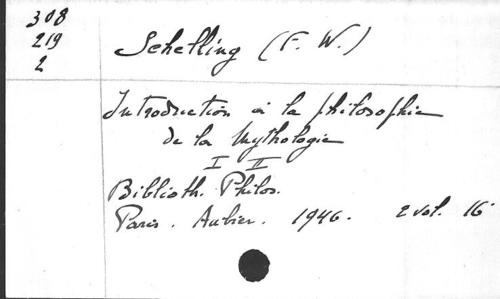 308
219
2
Schelling (F. W.)
Introduction à la philosophie
de la Mythologie
I II
Biblioth. Philos.
Paris. Aubier. 1946. 2 vol. 16°